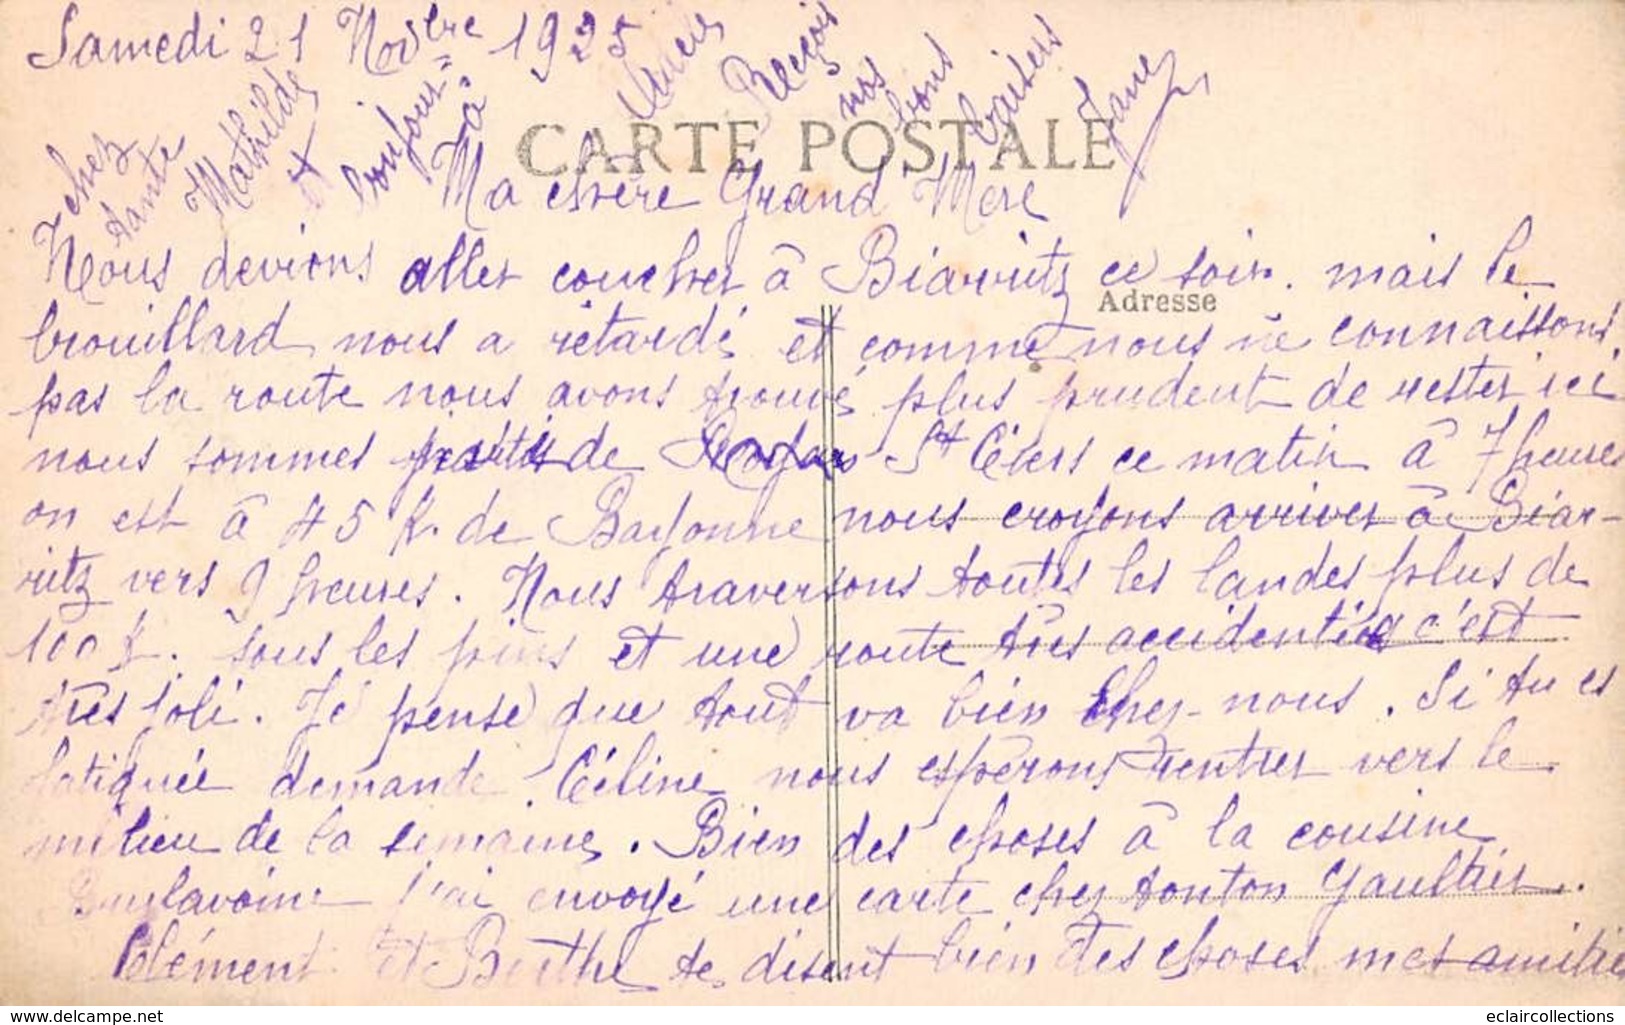 Samedi 21 Nov^bre 1925
chez
tante
Mathilde
et
bonjour
à
Lucien
Reçois
nos
bons
baisers
Jane
CARTE POSTALE
Ma chère Grand Mere
Nous devions aller coucher à Biarritz ce soir. mais le
Adresse
brouillard nous a retardé et comme nous ne connaissons
pas la route nous avons trouvé plus prudent de rester ici
nous sommes partis de St Ciers ce matin à 7 heures
on est à 45 k. de Bayonne nous croyons arriver à Biar-
ritz vers 9 heures. Nous traversons toutes les landes plus de
100 k. sous les pins et une route très accidentée c'est
très joli. Je pense que tout va bien chez-nous. Si tu es
fatiguée demande Céline nous espérons rentrer vers le
milieu de la semaine. Bien des choses à la cousine
j'ai envoyé une carte chez tonton Gaulthier.
Clément et Berthe te disent bien des choses mes amitiés
www.delcampe.net
eclaircollections